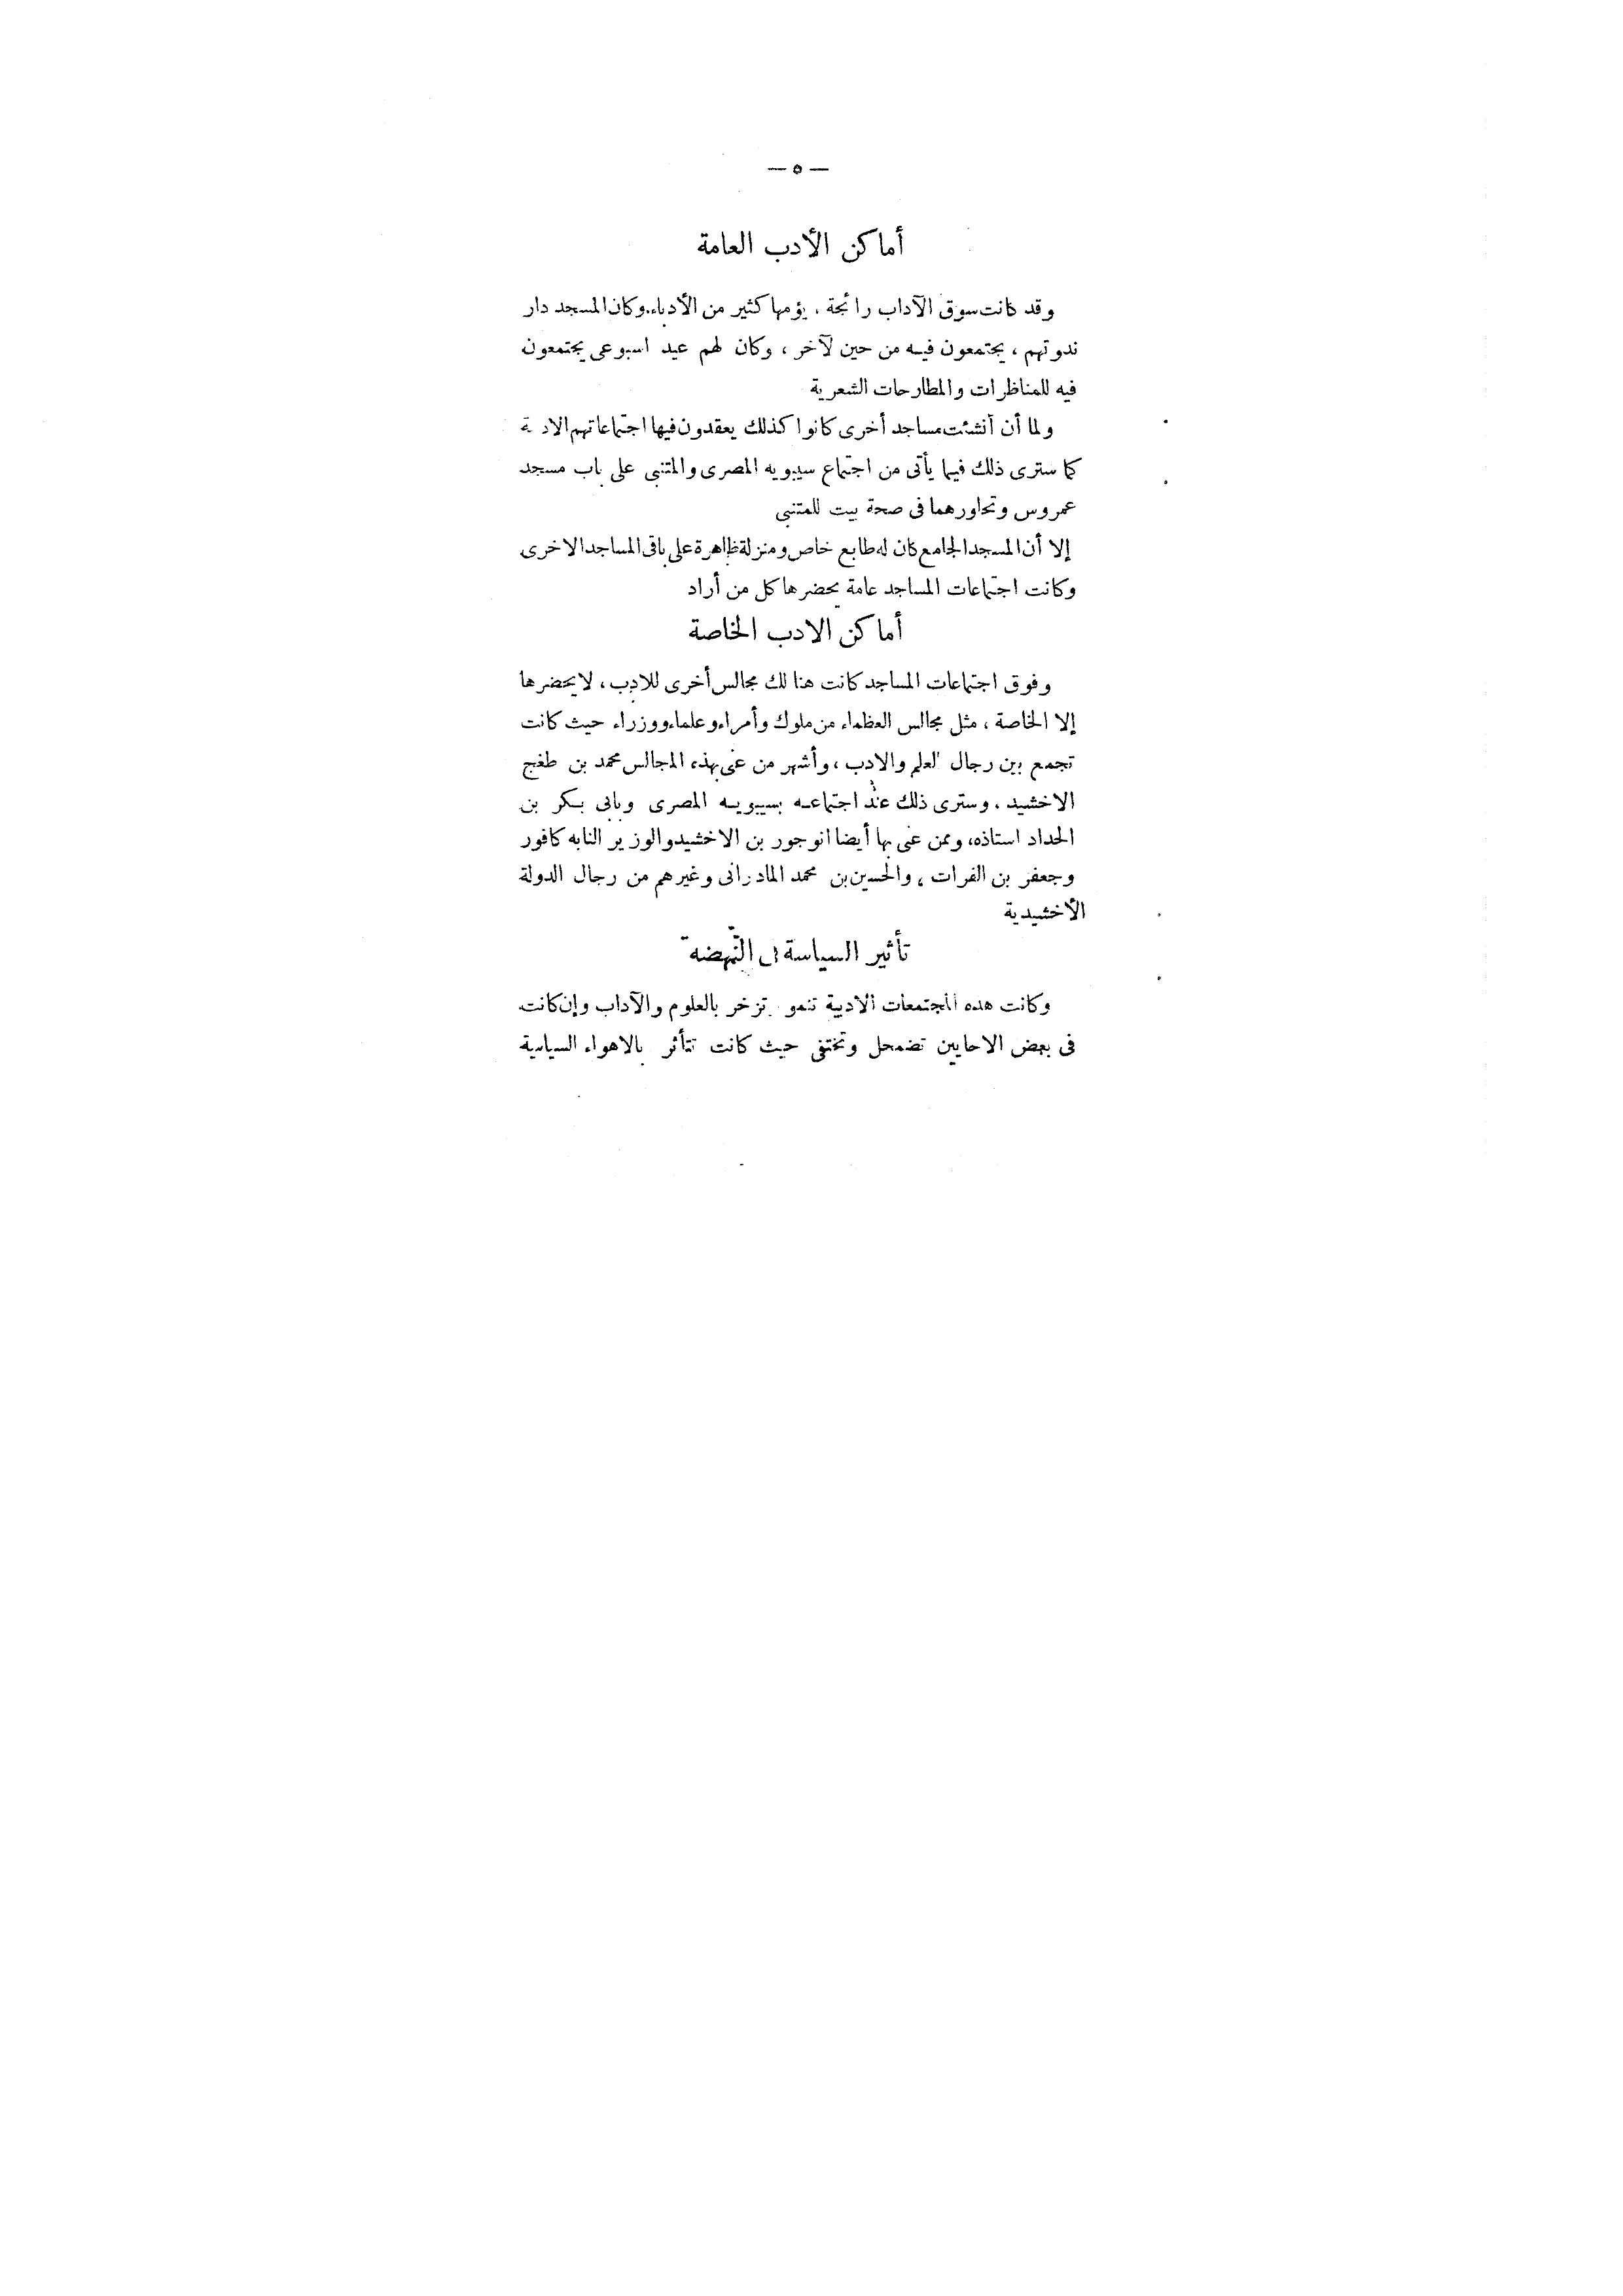 — ٥ —
أماكن الأدب العامة
وقد كانت سوق الآداب رائجة ، يؤمها كثير من الأدباء. وكان المسجد دار
ندوتهم ، يجتمعون فيه من حين لآخر ، وكان لهم عيد اسبوعى يجتمعون
فيه للمناظرات والمطارحات الشعرية
ولما أن أنشئت مساجد أخرى كانوا كذلك يعقدون فيها اجتماعاتهم
كما سترى ذلك فيما يأتى من اجتماع سيبويه المصرى والمتنبى على باب مسجد
عمروس وتحاورهما فى صحة بيت للمتنبى
إلا أن المسجد الجامع كان له طابع خاص ومنزلة ظاهرة على باقى المساجد الاخرى
وكانت اجتماعات المساجد عامة يحضرها كل من أراد
أماكن الادب الخاصة
وفوق اجتماعات المساجد كانت هنا لك مجالس أخرى للادب ، لا يحضرها
إلا الخاصة ، مثل مجالس العظماء من ملوك وأمراء وعلماء ووزراء حيث كانت
تجمع بين رجال العلم والادب ، وأشهر من عنى بهذه المجالس محمد بن طغج
الاخشيد ، وسترى ذلك عند اجتماعه بسيبويه المصرى وبابى بكر بن
الحداد استاذه، وممن عنى بها أيضا انوجور بن الاخشيد والوزير النابه كافور
وجعفر بن الفرات ، والحسين بن محمد المادرانى وغيرهم من رجال الدولة
الأخشيدية
تأثير السياسة فى النهضة
وكانت هذه المجتمعات الادبية تنمو تزخر بالعلوم والآداب وإن كانت
فى بعض الاحايين تضمحل وتختفى حيث كانت تتأثر بالاهواء السياسية